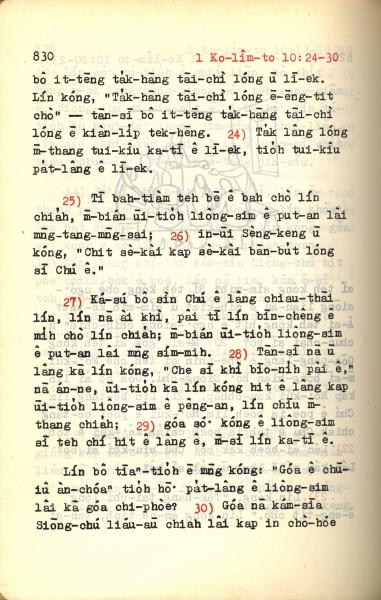 830 1 Ko-lîm-to 10:24-30
bô it-tēng ta̍k-hāng tāi-chì lóng ū lī-ek.
Lín kóng, "Ta̍k-hāng tāi-chì lóng ē-ēng-tit
chò" — tān-sī bô it-tēng ta̍k-hāng tāi-chì
lóng ē kiàn-li̍p tek-hēng. 24) Ta̍k lâng lóng
m̄-thang tui-kiû ka-tī ê lī-ek, tio̍h tui-kiû
pa̍t-lâng ê lī-ek.
25) Tī bah-tiàm teh bē ê bah chò lín
chia̍h, m̄-bián ūi-tio̍h liong-sim ê put-an lâi
mn̄g-tang-mn̄g-sai; 26) in-ūi Sèng-keng ū
kóng, "Chit sè-kài kap sè-kài bān-bu̍t lóng
sī Chú ê."
27) Ká-sú bô sìn Chú ê lâng chiau-thāi
lín, lín nā ài khì, pâi tī lín bīn-chêng ê
mi̍h chò lín chia̍h; m̄-bián ūi-tio̍h liong-sim
ê put-an lâi mn̄g sím-mih. 28) Tān-sī nā ū
lâng kā lín kóng, "Che sī khì biō-nih pài ê,"
nā án-ne, ūi-tio̍h kā lín kóng hit ê lâng kap
ūi-tio̍h liong-sim ê pêng-an, lín chiū m̄-
thang chia̍h; 29) góa só͘ kóng ê liong-sim
sī teh chí hit ê lâng ê, m̄-sī lín ka-tī ê.
Lín bô tiaⁿ-tio̍h ē mn̄g kóng: "Góa ê chū-
iû àn-chóaⁿ tio̍h hō͘ pa̍t-lâng ê liong-sim
lâi kā góa chi-phòe? 30) Góa nā kám-siā
Siōng-chú liáu-āu chiah lâi kap in chò-hóe